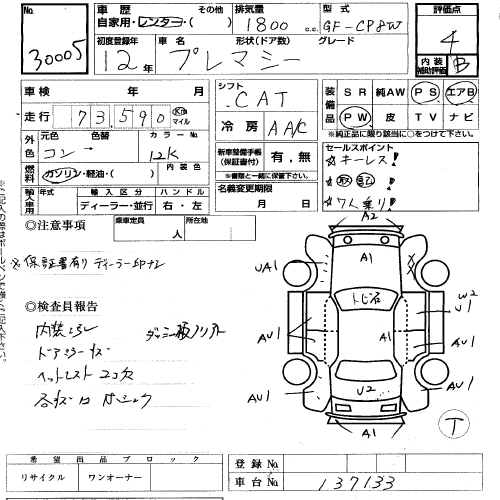 No. 30005
車歴 自家用・レンタカー・( ) その他
排気量 1800 c.c.
型式 GF-CP8W
評価点 4
内装補助評価 B
初度登録年 12年
車名 プレマシー
形状(ドア数) グレード
車検 年 月
シフト CAT
装備品 SR 純AW PS エアB
PW 皮 TV ナビ
※純正品に限り該当に○をつけて下さい。
走行 73,590 Km マイル
冷房 AAC
外色 元色 色替 カラーNo.
コン 12K
燃料 ガソリン・軽油・( )
新車整備手帳(保証書付) 有・無
※書類と一緒に保管して下さい。
セールスポイント
☆キーレス!
☆取 記!
☆7人乗り!
輸入車用 年式 輸入区分 ハンドル
年 ディーラー・並行 右・左
名義変更期限 月 日
◎注意事項
乗車定員 人
所在地
※保証書有り ディーラー印ナシ
◎検査員報告
内装
ヘッドレスト2コ欠
A2
A1
UA1
トビ石
W2
U1
A1
A1
AU1
U2
AU1
AU1
A1
T
希望出品ブロック
リサイクル ワンオーナー
登録No.
車台No. 137133